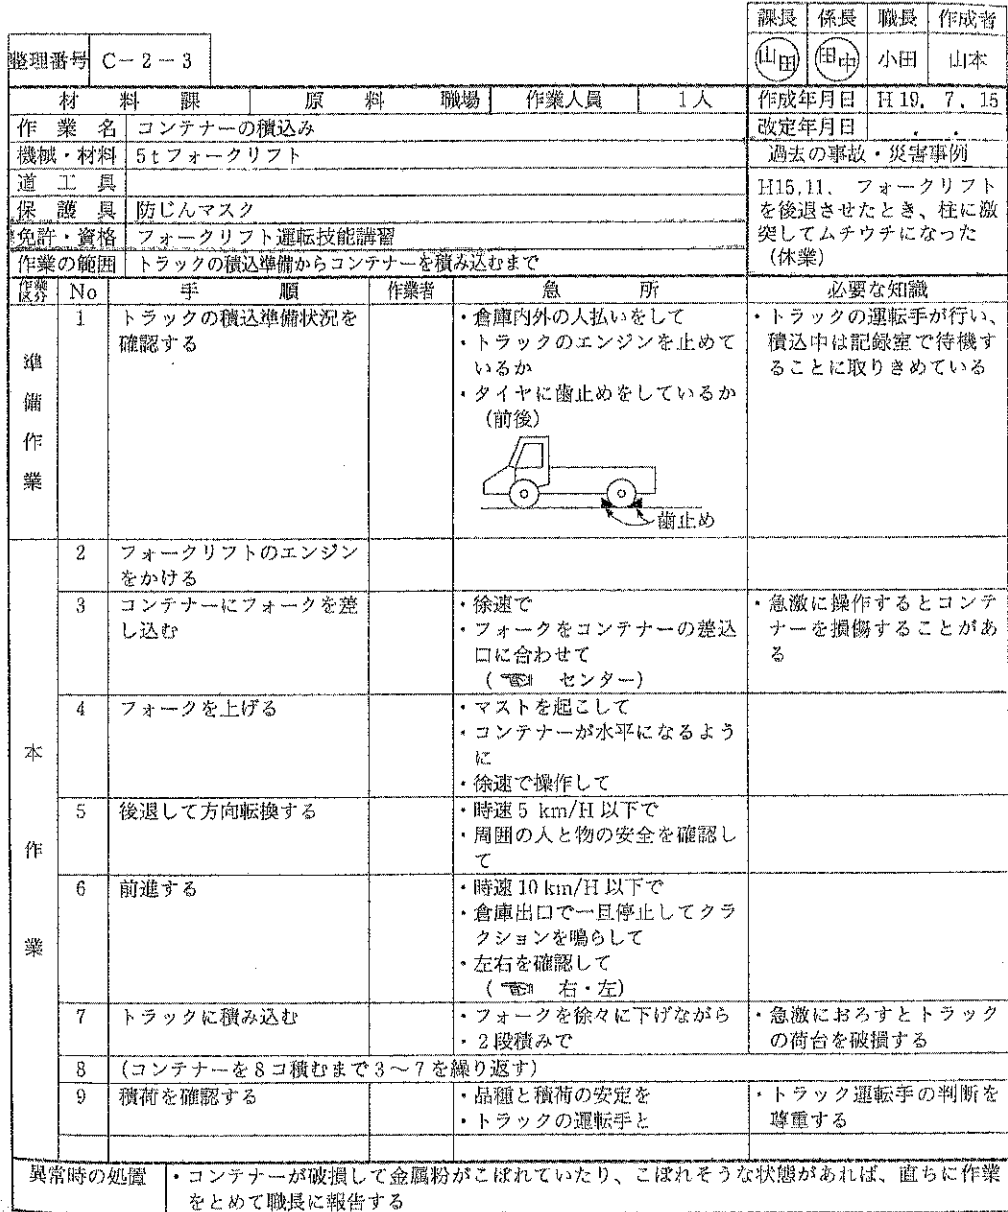 課長 係長 職長 作成者
整理番号 C－2－3 山田 田中 小田 山本
材料課 原料職場 作業人員 1人 作成年月日 H19. 7. 15
作業名 コンテナーの積込み 改定年月日 ． ．
機械・材料 5tフォークリフト 過去の事故・災害事例
道工具
保護具 防じんマスク
免許・資格 フォークリフト運転技能講習
作業の範囲 トラックの積込準備からコンテナーを積み込むまで
H15.11. フォークリフト
を後退させたとき、柱に激
突してムチウチになった
（休業）
作業区分 No 手順 作業者 急所 必要な知識
準備作業
1 トラックの積込準備状況を
確認する
・倉庫内外の人払いをして
・トラックのエンジンを止めて
いるか
・タイヤに歯止めをしているか
（前後）
歯止め
・トラックの運転手が行い、
積込中は記録室で待機す
ることに取りきめている
本作業
2 フォークリフトのエンジン
をかける
3 コンテナーにフォークを差
し込む
・徐速で
・フォークをコンテナーの差込
口に合わせて
（☜ センター）
・急激に操作するとコンテ
ナーを損傷することがあ
る
4 フォークを上げる
・マストを起こして
・コンテナーが水平になるよう
に
・徐速で操作して
5 後退して方向転換する
・時速5 km/H以下で
・周囲の人と物の安全を確認し
て
6 前進する
・時速10 km/H以下で
・倉庫出口で一旦停止してクラ
クションを鳴らして
・左右を確認して
（☜ 右・左）
7 トラックに積み込む
・フォークを徐々に下げながら
・2段積みで
・急激におろすとトラック
の荷台を破損する
8 （コンテナーを8コ積むまで3～7を繰り返す）
9 積荷を確認する
・品種と積荷の安定を
・トラックの運転手と
・トラック運転手の判断を
尊重する
異常時の処置 ・コンテナーが破損して金属粉がこぼれていたり、こぼれそうな状態があれば、直ちに作業
をとめて職長に報告する